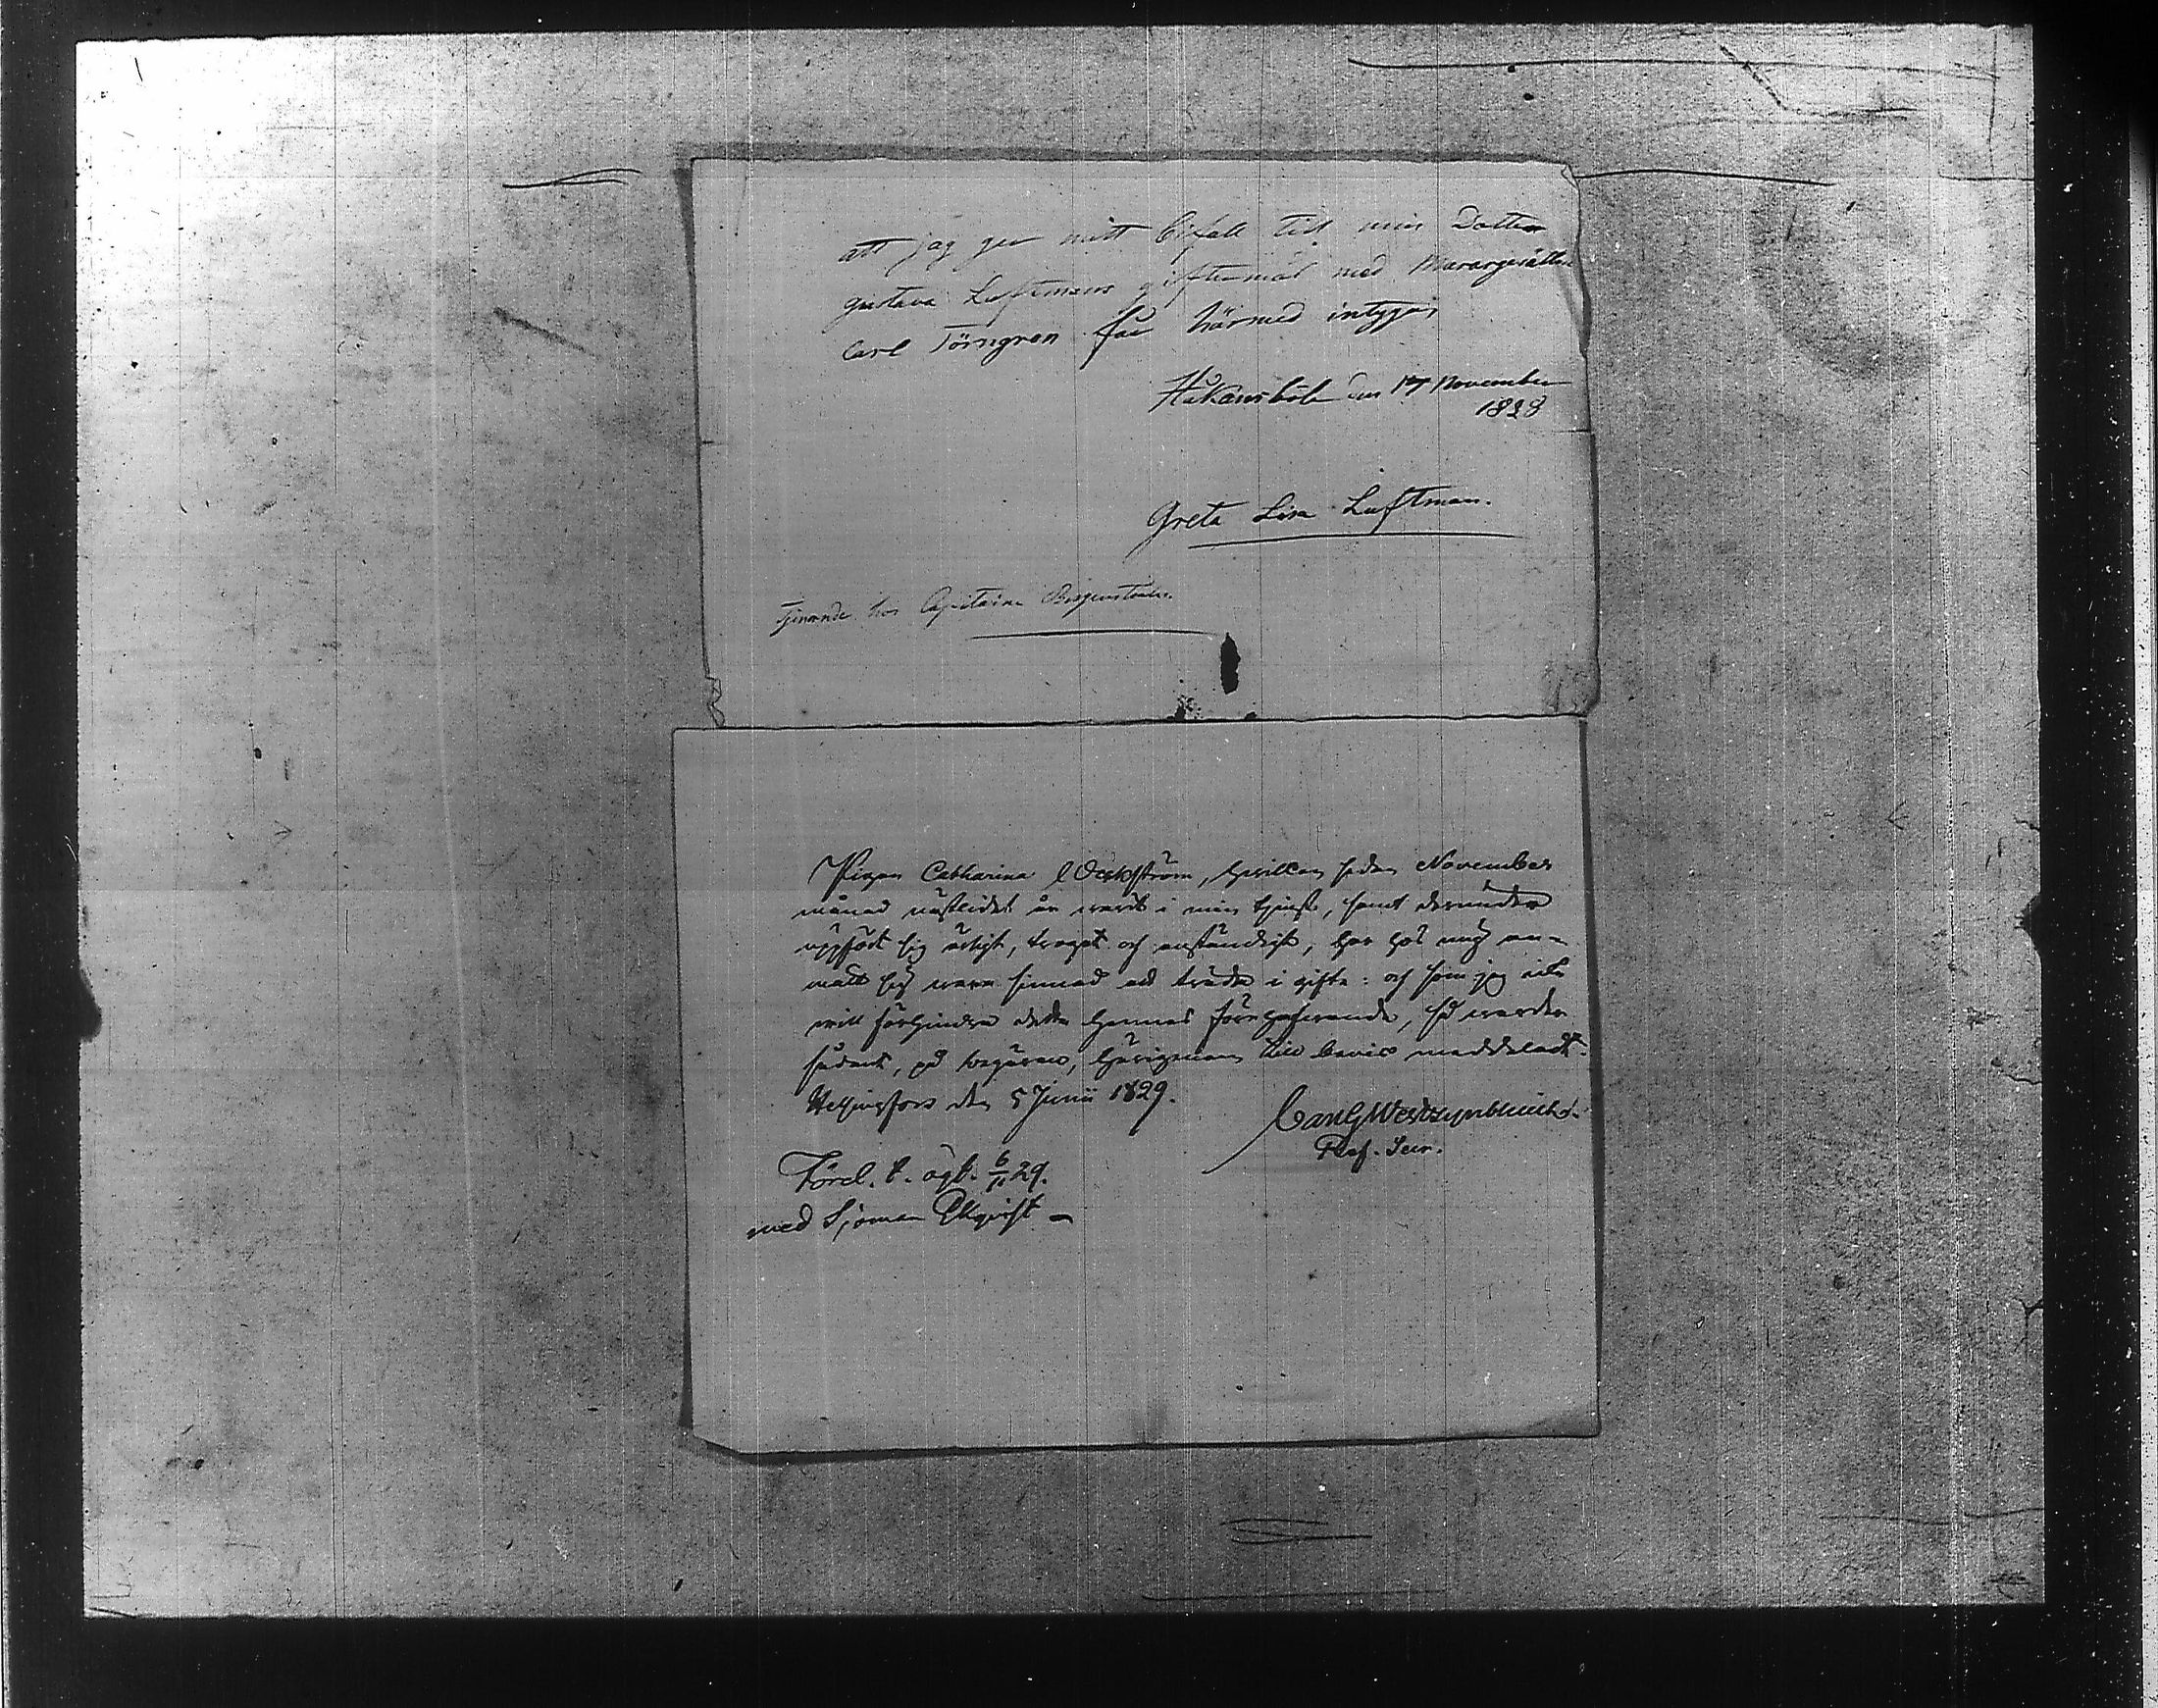 att jag ger mitt bifall till min Dotter
Gustava Luftmans giftermål med Murargesällen
Carl Törngren får härmed intygas
Håkansböle den 17 November
1828
Greta Lisa Luftman.
Tjenande hos Capitaine
Pigan Catharina Weckström, hvilken sedan November
månad nästledit år warit i min tjenst, samt derunder
uppfört sig ärligt, troget och anständigt, har hos mig an-
mält sig wara sinnad att träda i gifte: och som jag icke
will förhindra detta hennes förehafwande, så warder
sådant, på begäran, härigenom till bevis meddeladt.
Helsingfors den 5 Junii 1829.
Ref. Secr.
Förel. t. ägt. 6/11 29.
med Sjöman Ekqvist